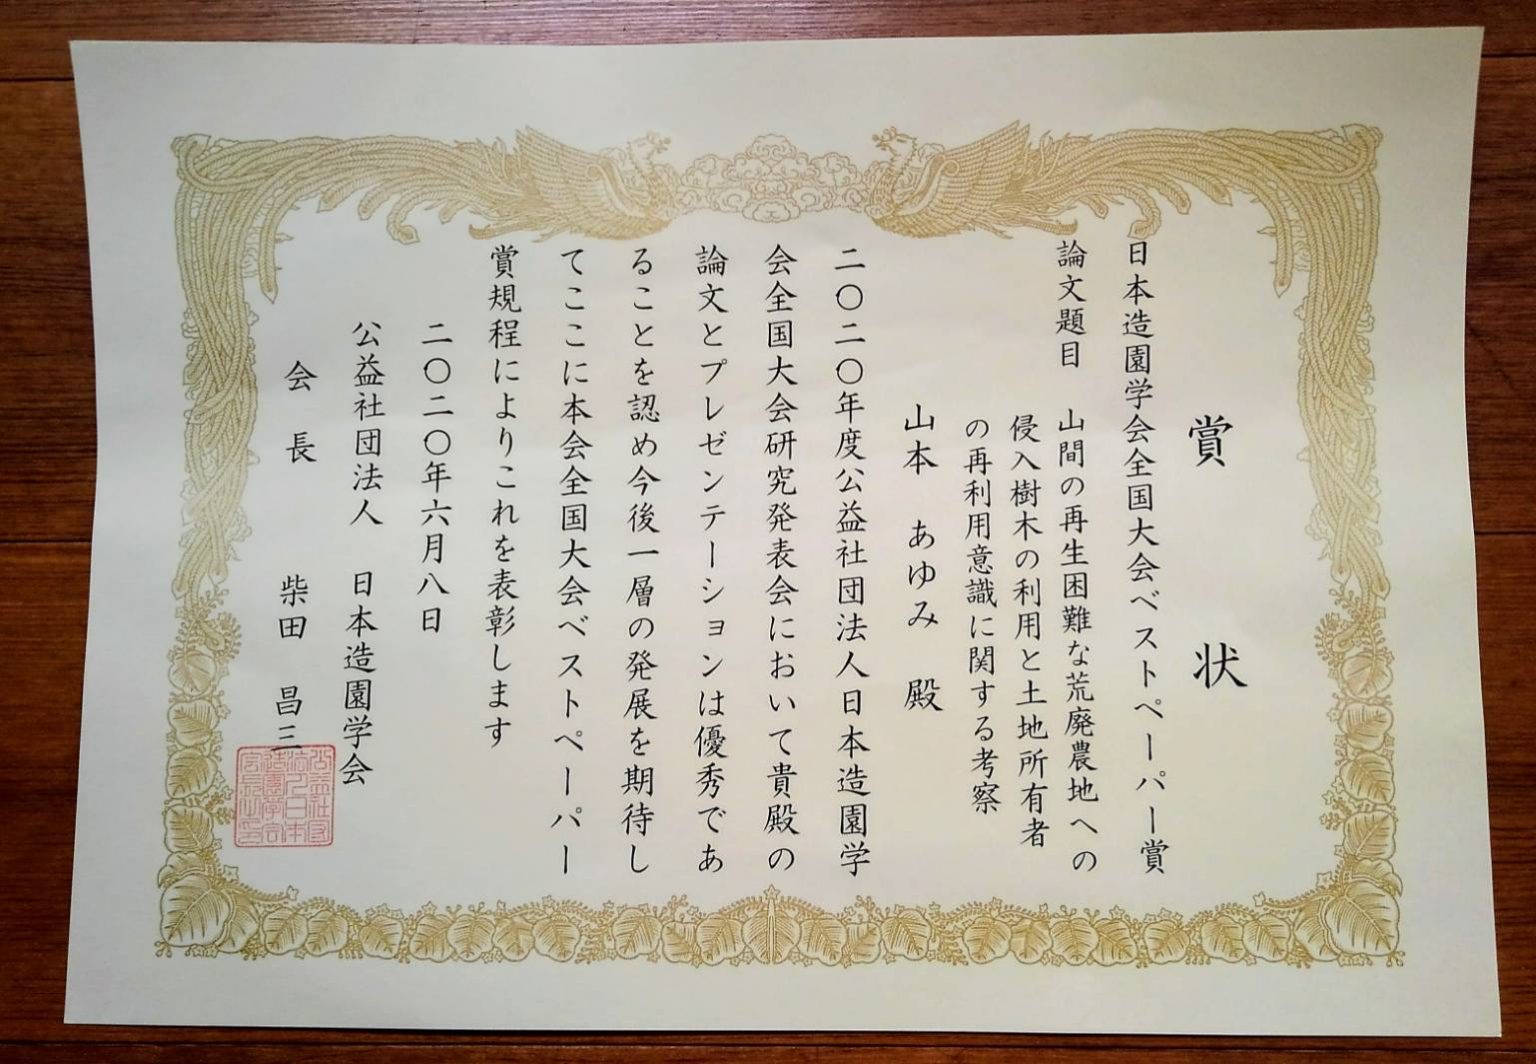 賞状
日本造園学会全国大会ベストペーパー賞
論文題目 山間の再生困難な荒廃農地への
侵入樹木の利用と土地所有者
の再利用意識に関する考察
山本 あゆみ 殿
二〇二〇年度公益社団法人日本造園学
会全国大会研究発表会において貴殿の
論文とプレゼンテーションは優秀であ
ることを認め今後一層の発展を期待し
てここに本会全国大会ベストペーパー
賞規程によりこれを表彰します
二〇二〇年六月八日
公益社団法人 日本造園学会
会長 柴田 昌三
公益社団
法人日本
造園学会
会長之印